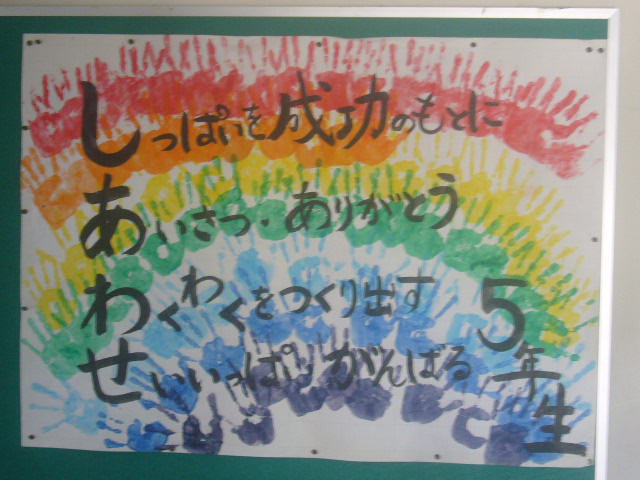 しっぱいを成功のもとに
あいさつ・ありがとう
わくわくをつくり出す
せいいっぱいがんばる
5年生